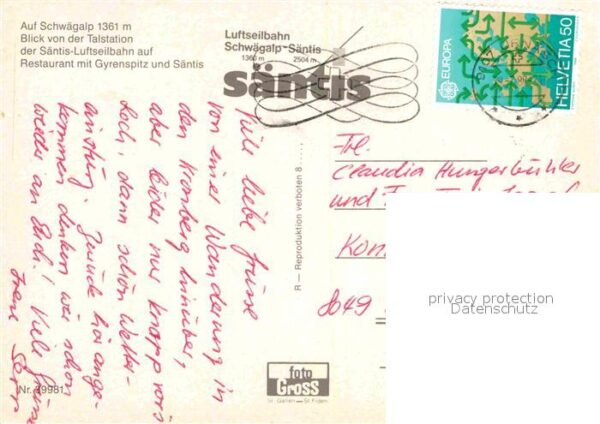 Auf Schwägalp 1361 m
Blick von der Talstation
der Säntis-Luftseilbahn auf
Restaurant mit Gyrenspitz und Säntis
Luftseilbahn
Schwägalp-Säntis
1360 m 2504 m
säntis
EUROPA
HELVETIA 50
Viele liebe Grüsse
von einer Wanderung in
den Kronberg hinüber,
aber leider nur knapp vors
Loch, dann schön Wetter-
Zurück hier ange-
kommen denken wir schon
wieder an Euch! Viele Grüsse
Irene
R — Reproduktion verboten 8
Frl.
Claudia Hungerbühler
und
Kon
8049
privacy protection
Datenschutz
foto
Gross
St. Gallen — St. Fiden
Nr. 19981